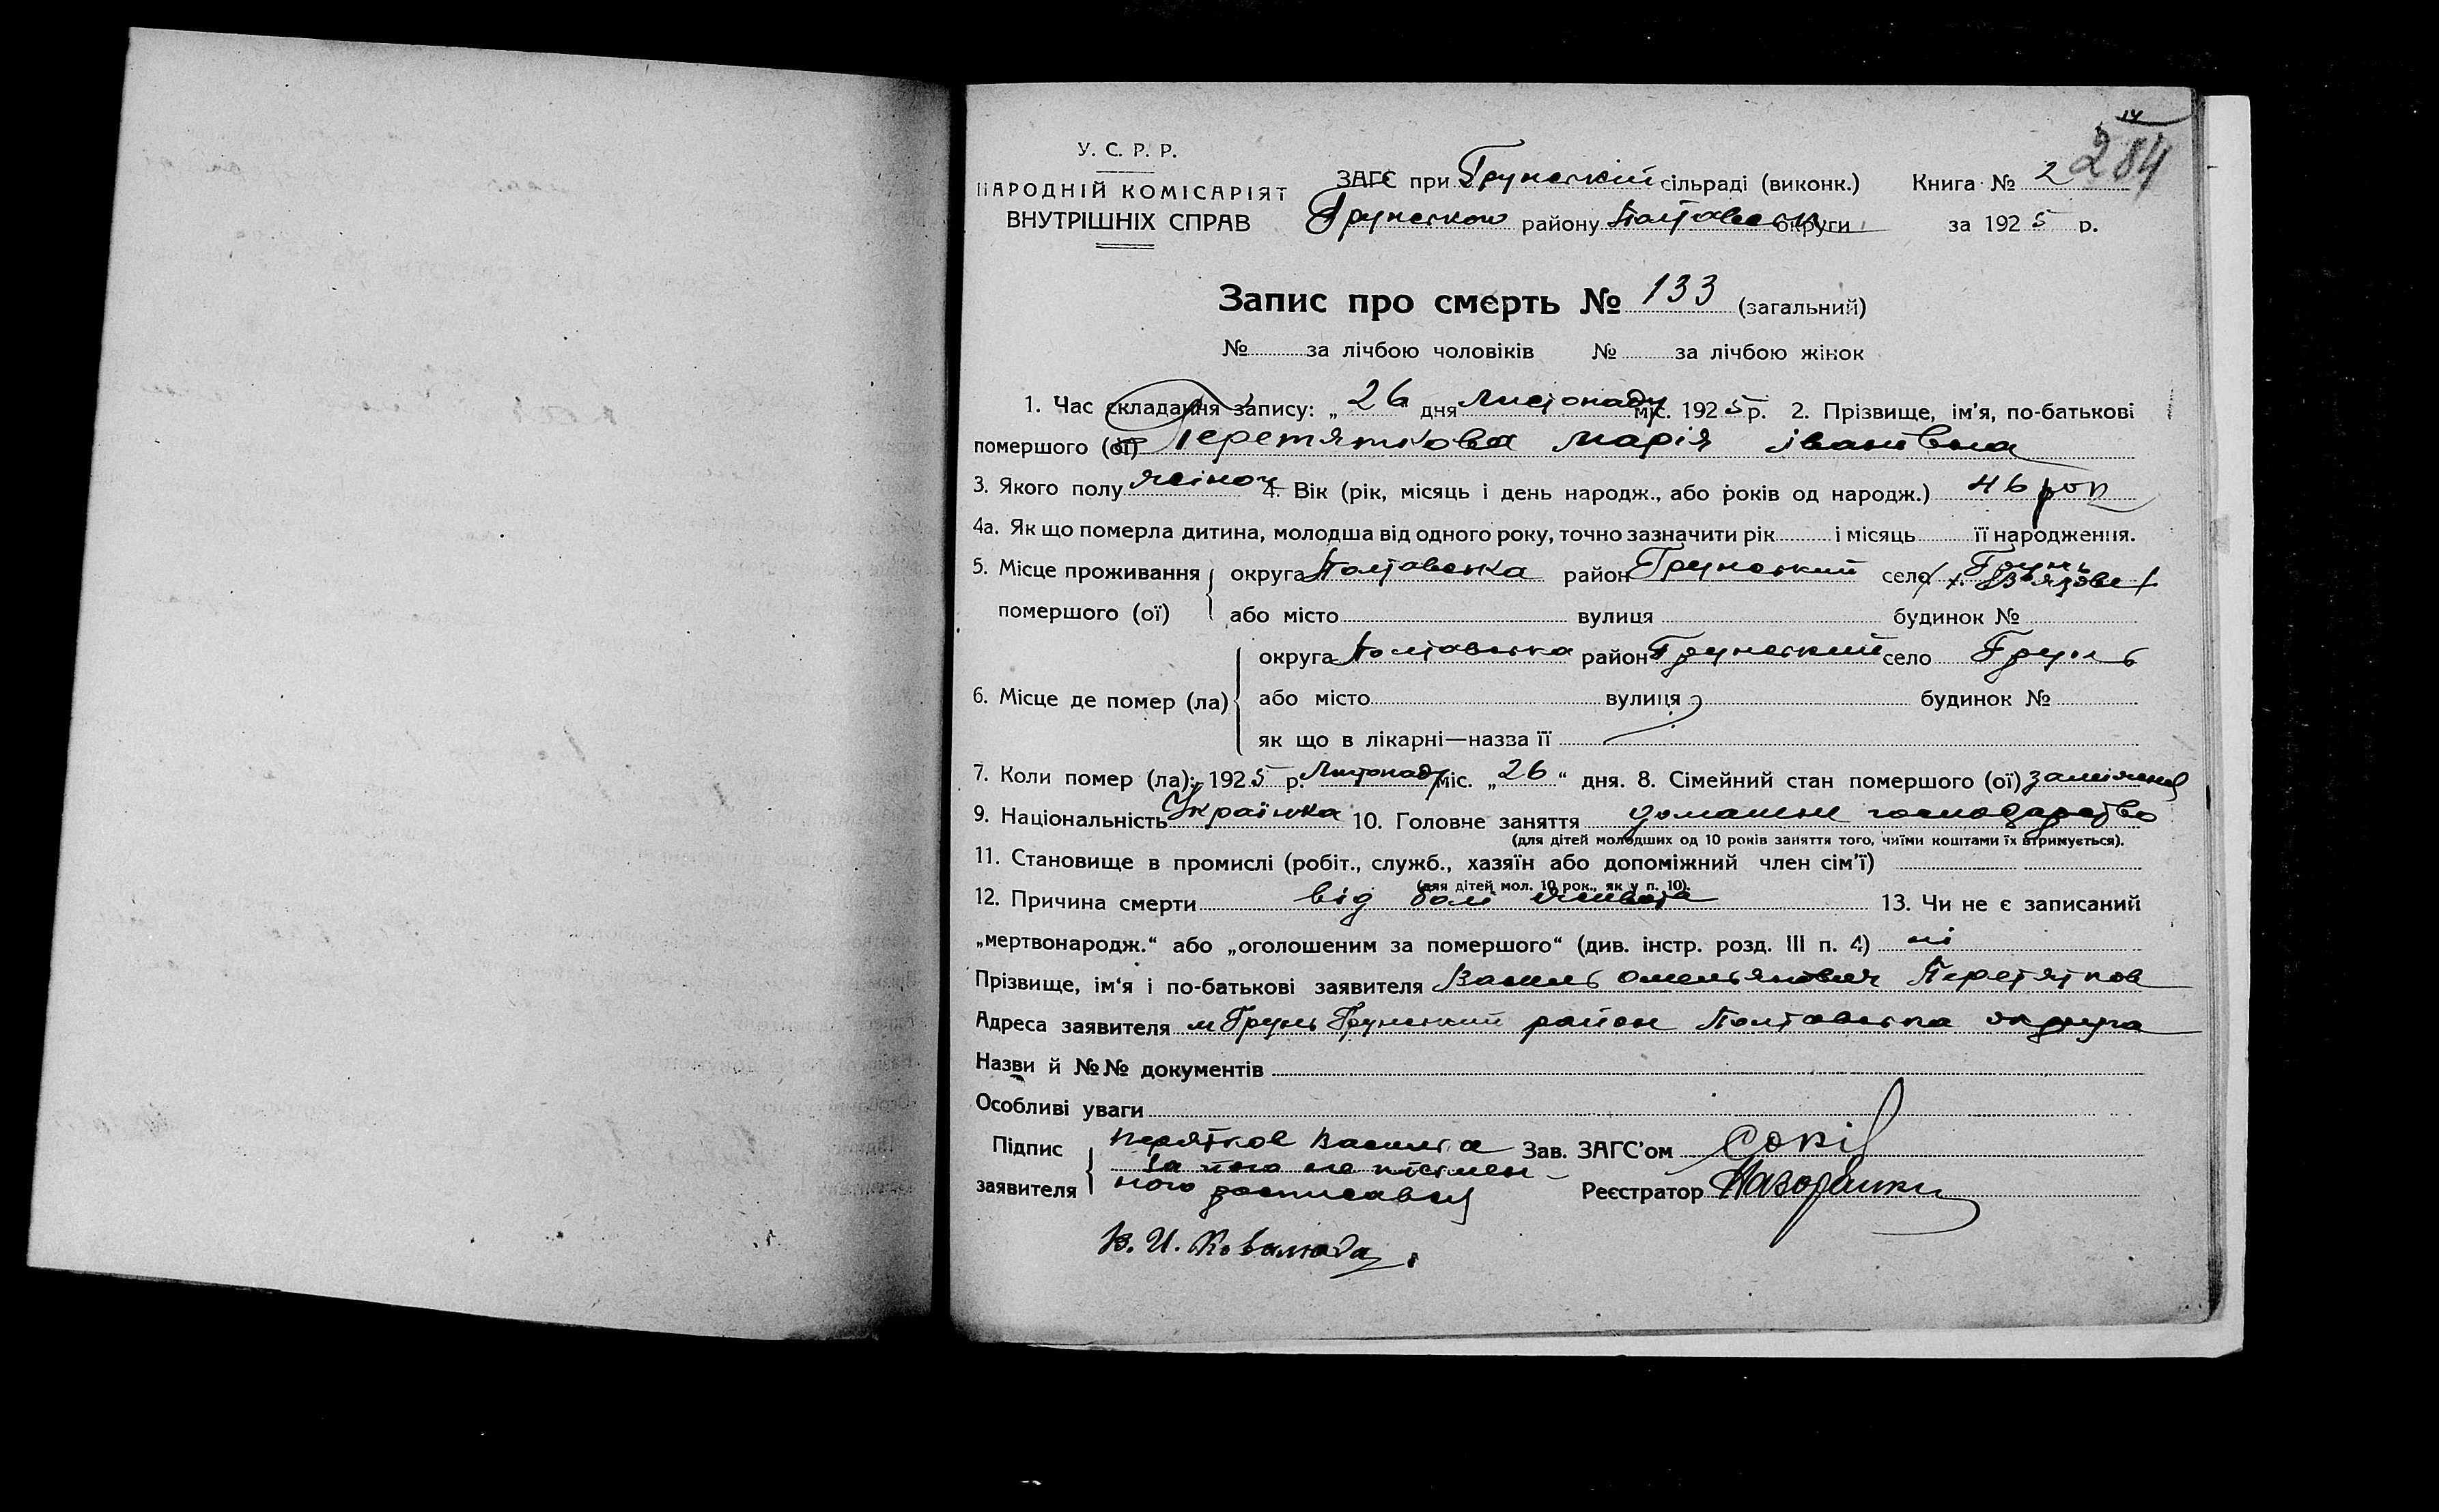 284
У. С. Р. Р.
НАРОДНІЙ КОМІСАРІЯТ
ВНУТРІШНІХ СПРАВ
ЗАГС при Грунський сільраді (виконк.) Книга № 2
Грунського району Полтавськ округи за 1925 р.
Запис про смерть № 133 (загальний)
№ за лічбою чоловіків № за лічбою жінок
1. Час складання запису: „26“ дня Листопаду міс. 1925 р. 2. Прізвище, ім'я, по-батькові
помершого (ої) Перетяткова Марія Іванівна
3. Якого полу жіноч 4. Вік (рік, місяць і день народж., або років од народж.) 46 рок
4а. Як що померла дитина, молодша від одного року, точно зазначити рік і місяць її народження.
5. Місце проживання помершого (ої) округа Полтавська район Грунський село Грунь
або місто вулиця будинок №
6. Місце де помер (ла) округа Полтавська район Грунський село Грунь
або місто вулиця будинок №
як що в лікарні—назва її
7. Коли помер (ла): 1925 р. Листопаду міс. „26“ дня. 8. Сімейний стан помершого (ої) заміжня
9. Національність Українка 10. Головне заняття домашнє господарство
(для дітей молодших од 10 років заняття того, чиїми коштами їх втримується).
11. Становище в промислі (робіт., служб., хазяїн або допоміжний член сім'ї)
(для дітей мол. 10 рок., як у п. 10).
12. Причина смерти від болі живота 13. Чи не є записаний
„мертвонародж.“ або „оголошеним за помершого“ (див. інстр. розд. III п. 4) ні
Прізвище, ім'я і по-батькові заявителя Василь Омельянович Перетятков
Адреса заявителя м Грунь Грунський район Полтавська округа
Назви й №№ документів
Особливі уваги
Підпис заявителя Перятков Василь а Зав. ЗАГС'ом Сокіл
за його не письмен-
ного росписався Реєстратор
В. И. Ковальода